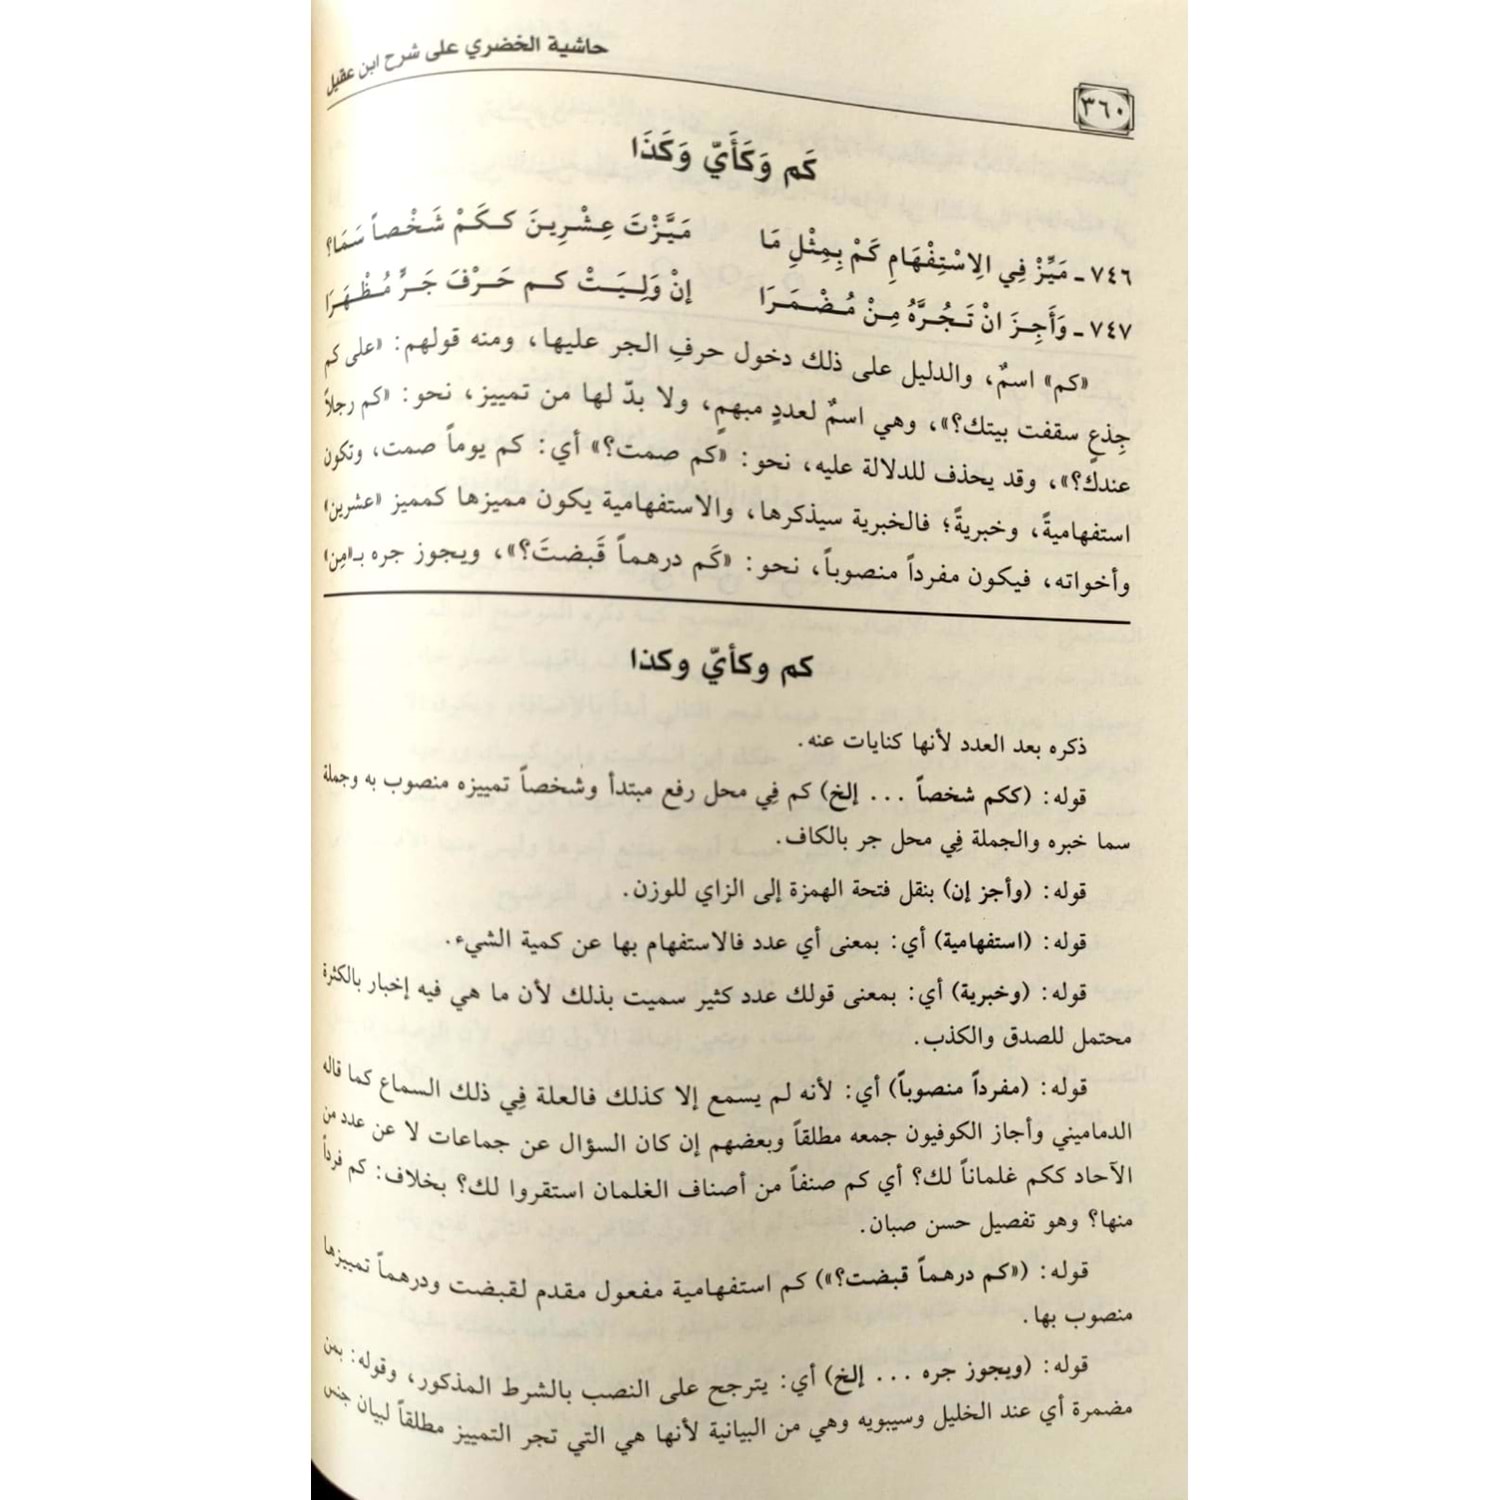 حاشية الخضري على شرح ابن عقيل
٣٦٠
كَم وَكَأَيّ وَكَذَا
٧٤٦ ـ مَيِّزْ فِي الِاسْتِفْهَامِ كَمْ بِمِثْلِ مَا مَيَّزْتَ عِشْرِينَ كَكَمْ شَخْصاً سَمَا؟
٧٤٧ ـ وَأَجِزَ انْ تَجُرَّهُ مِنْ مُضْمَرَا إنْ وَلِيَتْ كم حَرْفَ جَرٍّ مُظْهَرَا
«كم» اسمٌ، والدليل على ذلك دخول حرفِ الجر عليها، ومنه قولهم: «على كم
جِذعٍ سقفت بيتك؟»، وهي اسمٌ لعددٍ مبهمٍ، ولا بدّ لها من تمييز، نحو: «كم رجلاً
عندك؟»، وقد يحذف للدلالة عليه، نحو: «كم صمت؟» أي: كم يوماً صمت، وتكون
استفهاميةً، وخبريةً؛ فالخبرية سيذكرها، والاستفهامية يكون مميزها كمميز «عشرين»
وأخواته، فيكون مفرداً منصوباً، نحو: «كَم درهماً قَبضتَ؟»، ويجوز جره بـ«مِن»
كم وكأيّ وكذا
ذكره بعد العدد لأنها كنايات عنه.
قوله: (ككم شخصاً ... إلخ) كم فِي محل رفع مبتدأ وشخصاً تمييزه منصوب به وجملة
سما خبره والجملة فِي محل جر بالكاف.
قوله: (وأجز إن) بنقل فتحة الهمزة إلى الزاي للوزن.
قوله: (استفهامية) أي: بمعنى أي عدد فالاستفهام بها عن كمية الشيء.
قوله: (وخبرية) أي: بمعنى قولك عدد كثير سميت بذلك لأن ما هي فيه إخبار بالكثرة
محتمل للصدق والكذب.
قوله: (مفرداً منصوباً) أي: لأنه لم يسمع إلا كذلك فالعلة فِي ذلك السماع كما قاله
الدماميني وأجاز الكوفيون جمعه مطلقاً وبعضهم إن كان السؤال عن جماعات لا عن عدد من
الآحاد ككم غلماناً لك؟ أي كم صنفاً من أصناف الغلمان استقروا لك؟ بخلاف: كم فرداً
منها؟ وهو تفصيل حسن صبان.
قوله: («كم درهماً قبضت؟») كم استفهامية مفعول مقدم لقبضت ودرهماً تمييزها
منصوب بها.
قوله: (ويجوز جره ... إلخ) أي: يترجح على النصب بالشرط المذكور، وقوله: بمن
مضمرة أي عند الخليل وسيبويه وهي من البيانية لأنها هي التي تجر التمييز مطلقاً لبيان جنس